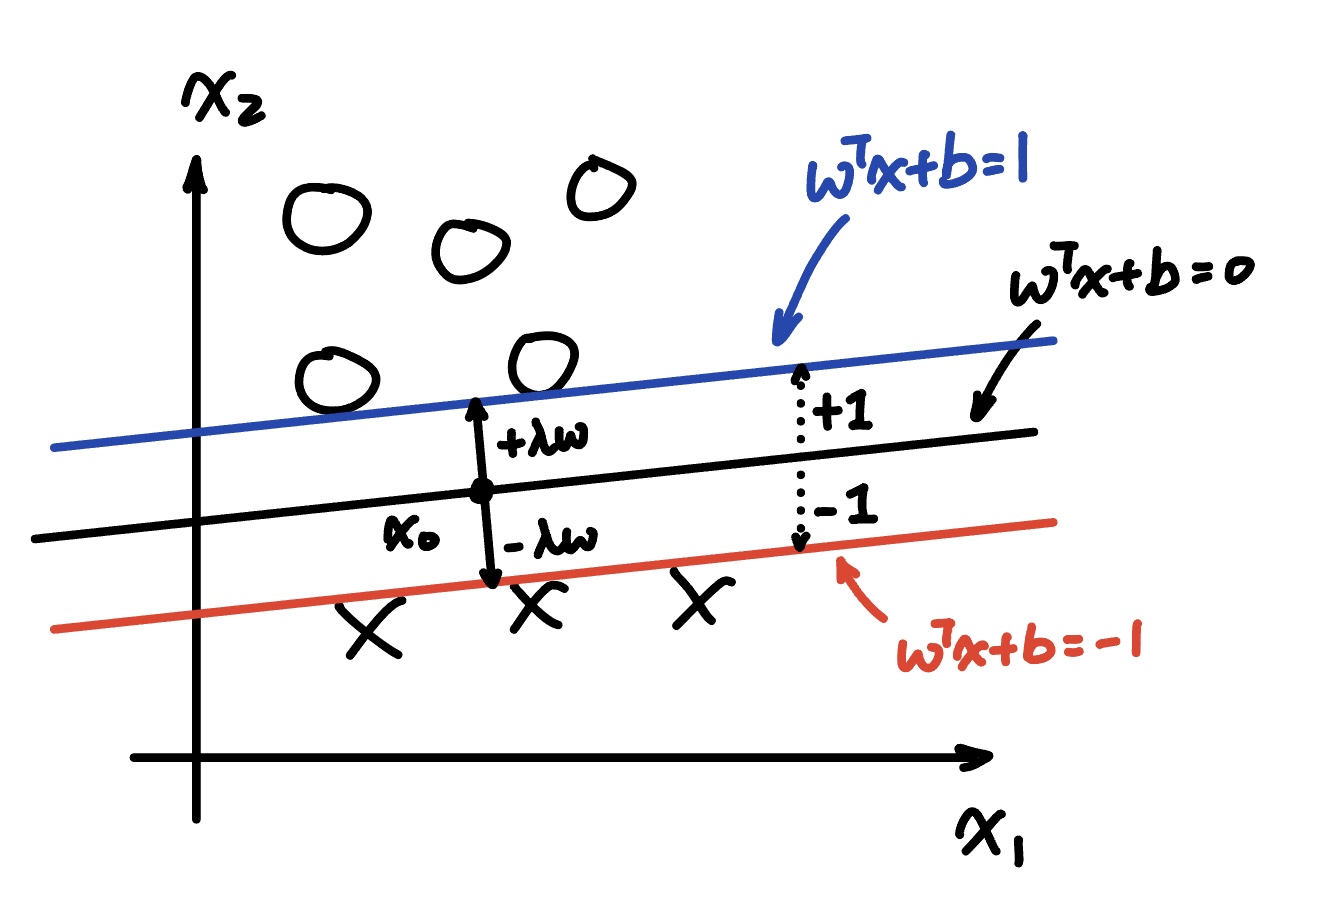 x₂
wᵀx+b=1
wᵀx+b=0
+1
+λw
-1
x₀
-λw
wᵀx+b=-1
x₁